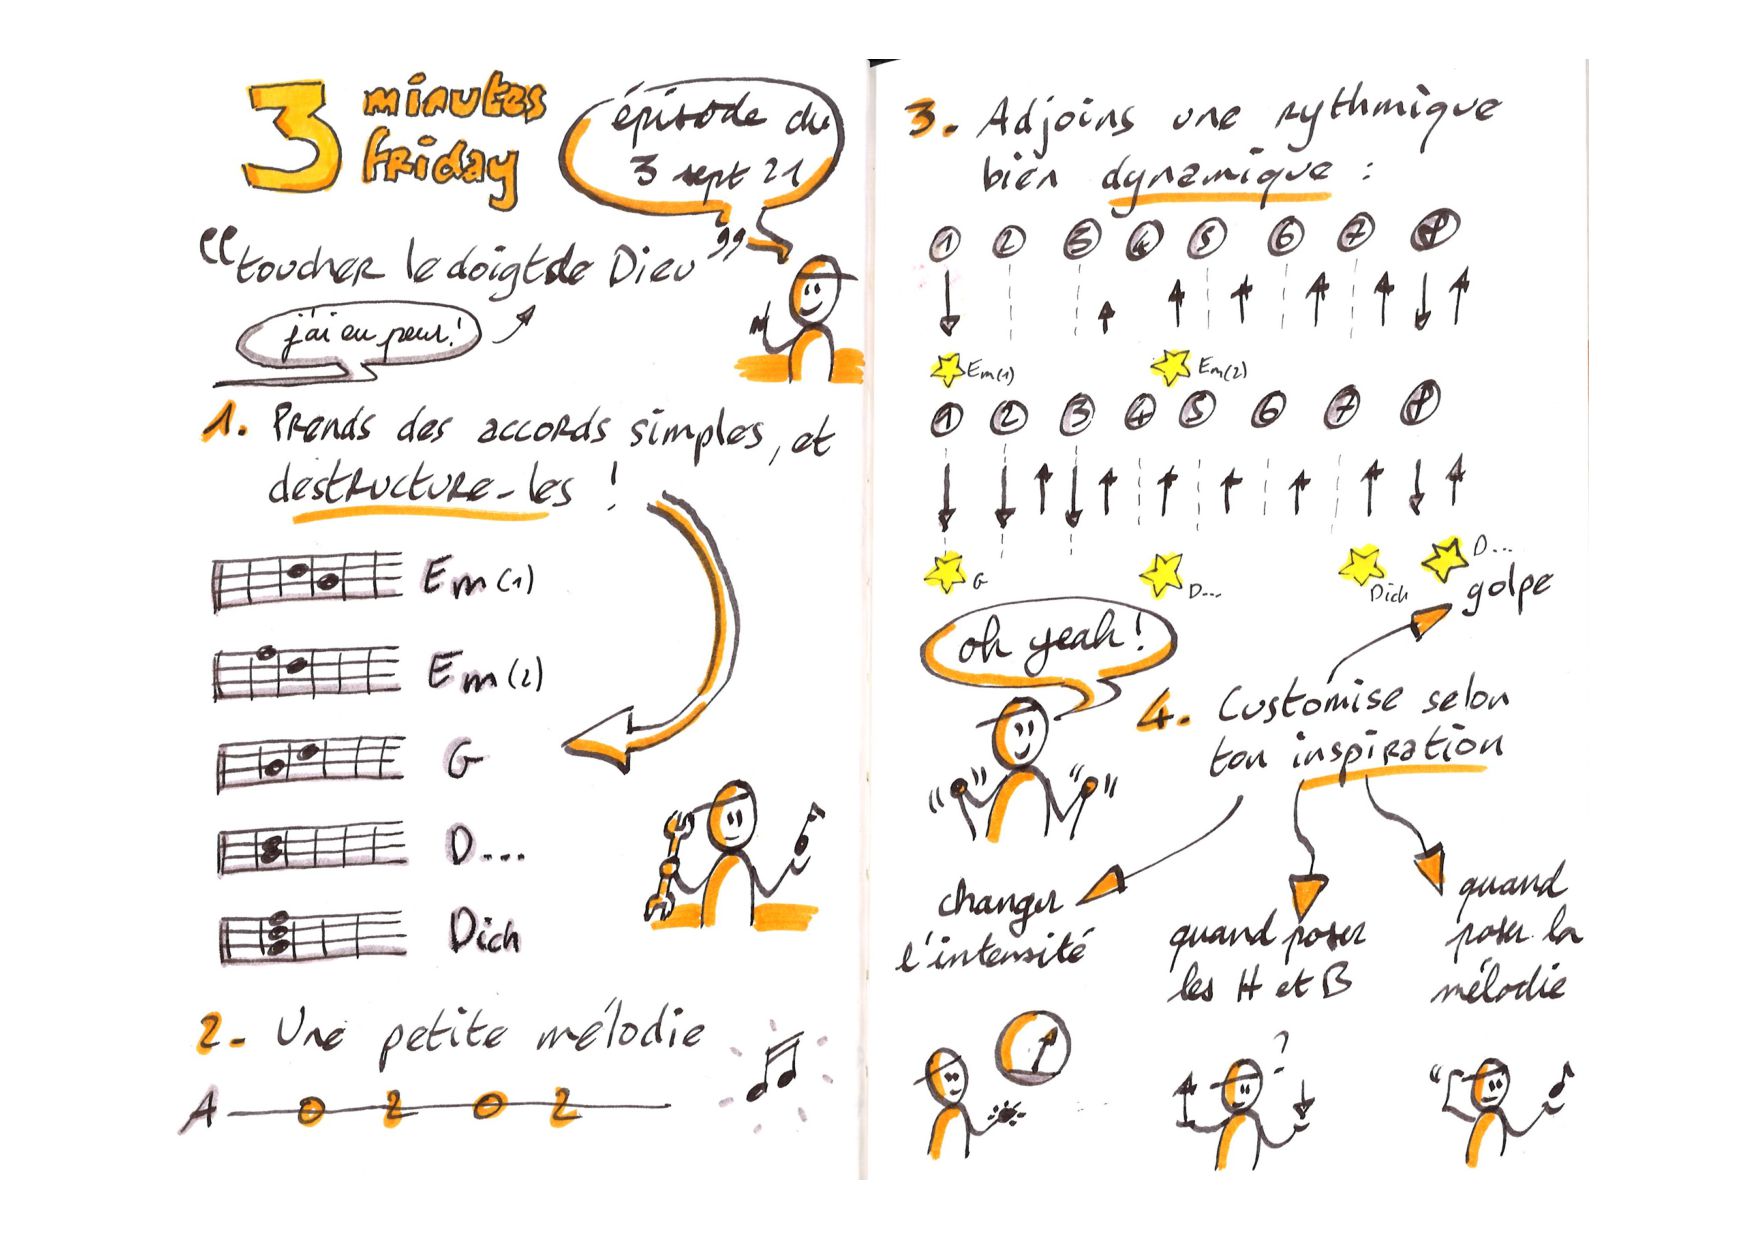 3 minutes
friday
épisode du
3 sept 21
“toucher le doigt de Dieu”
j'ai eu peur!
1. Prends des accords simples, et
destructure-les !
Em(1)
Em(2)
G
D...
Dich
2. Une petite mélodie
A 0 2 0 2
3. Adjoins une rythmique
bien dynamique :
1 2 3 4 5 6 7 8
Em(1) Em(2)
1 2 3 4 5 6 7 8
G D... Dich D...
golpe
oh yeah!
4. Customise selon
ton inspiration
changer
l'intensité
quand poser
les H et B
quand
poser la
mélodie
?